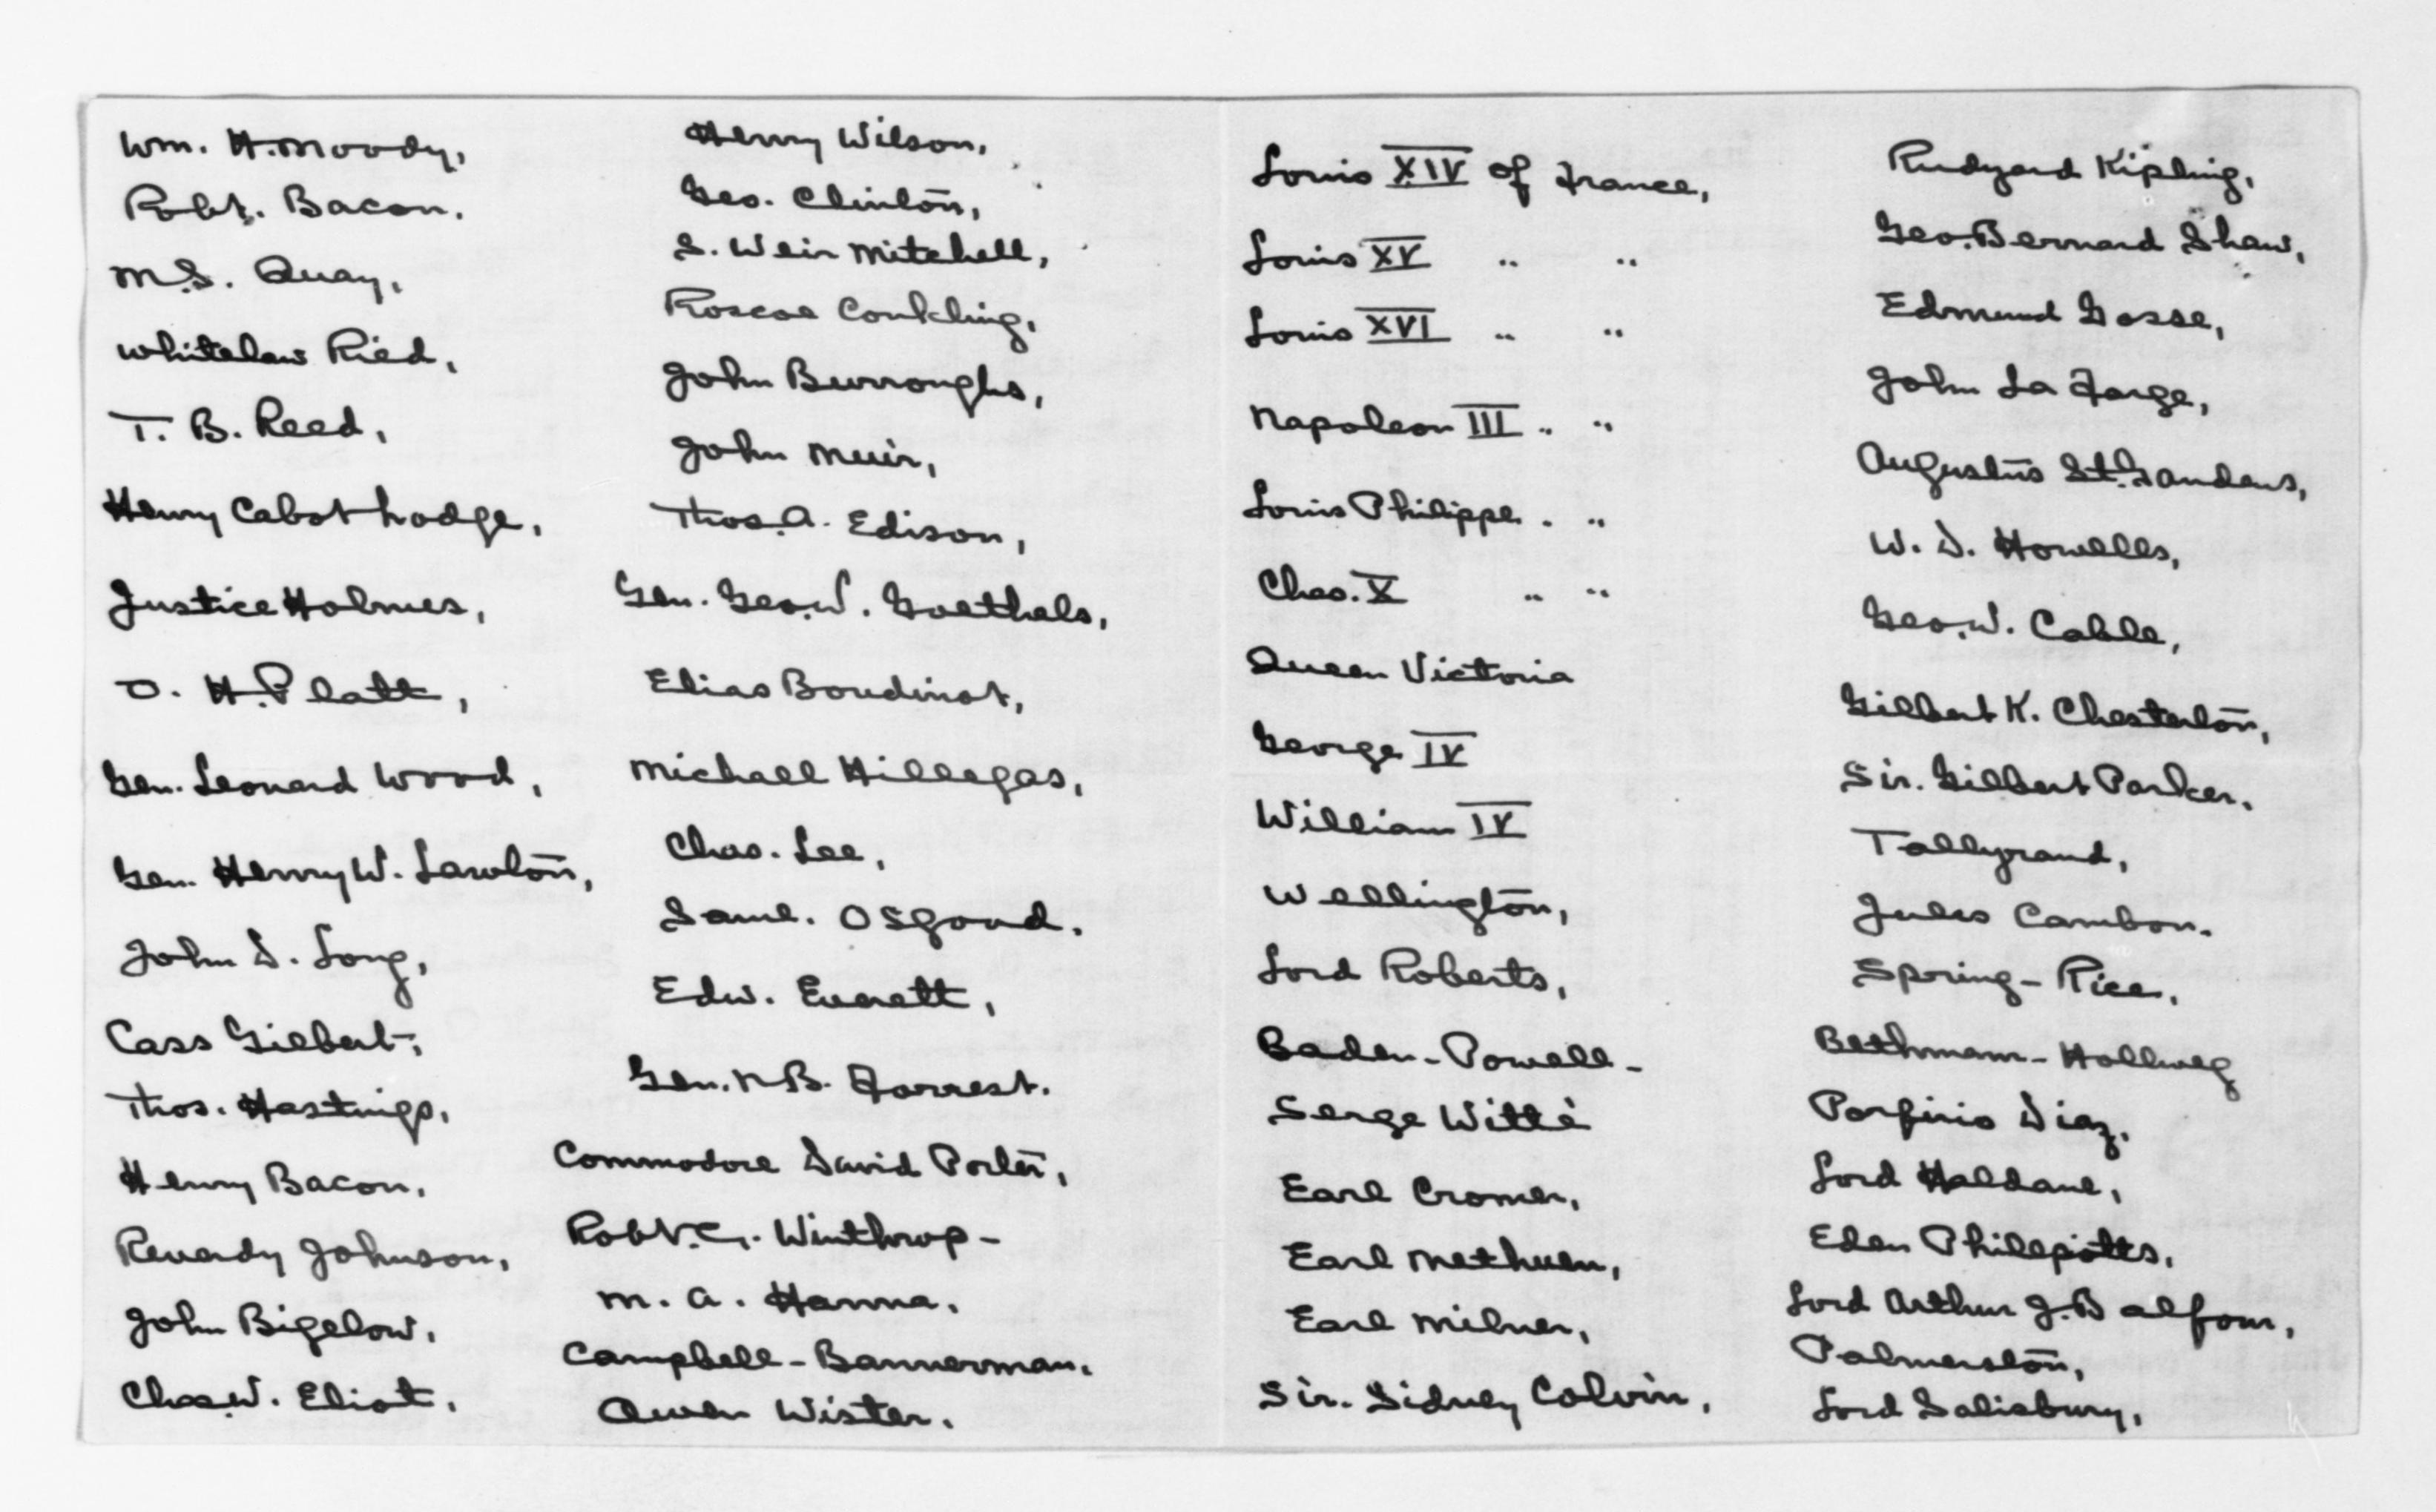 Wm. H. Moody,
Robt. Bacon.
M.S. Quay,
Whitelaw Ried,
T. B. Reed,
Henry Cabot Lodge,
Justice Holmes,
O. H. Platt,
Gen. Leonard Wood,
Gen. Henry W. Lawton,
John D. Long,
Cass Gilbert,
Thos. Hastings,
Henry Bacon,
Reverdy Johnson,
John Bigelow,
Chas. W. Eliot,
Henry Wilson,
Geo. Clinton,
S. Weir Mitchell,
Roscoe Conkling,
John Burroughs,
John Muir,
Thos. A. Edison,
Gen. Geo. W. Goethals,
Elias Boudinot,
Michael Hillegas,
Chas. Lee,
Saml. Osgood.
Edw. Everett,
Gen. N. B. Forrest.
Commodore David Porter,
Robt. C. Winthrop-
M. A. Hanna.
Campbell-Bannerman.
Owen Wister.
Louis XIV of France,
Louis XV " "
Louis XVI " "
Napoleon III " "
Louis Philippe " "
Chas. X " "
Queen Victoria
George IV
William IV
Wellington,
Lord Roberts,
Baden-Powell-
Serge Witté
Earl Cromer,
Earl Methuen,
Earl Milner,
Sir. Sidney Colvin,
Rudyard Kipling,
Geo. Bernard Shaw,
Edmund Gosse,
John La Farge,
Augustus St. Gaudens,
W. D. Howells,
Geo. W. Cable,
Gilbert K. Chesterton,
Sir. Gilbert Parker.
Tallyrand,
Jules Cambon.
Spring-Rice,
Bethmann-Hollweg
Porfirio Diaz,
Lord Haldane,
Eden Phillpotts,
Lord Arthur J. Balfour,
Palmerston,
Lord Salisbury,